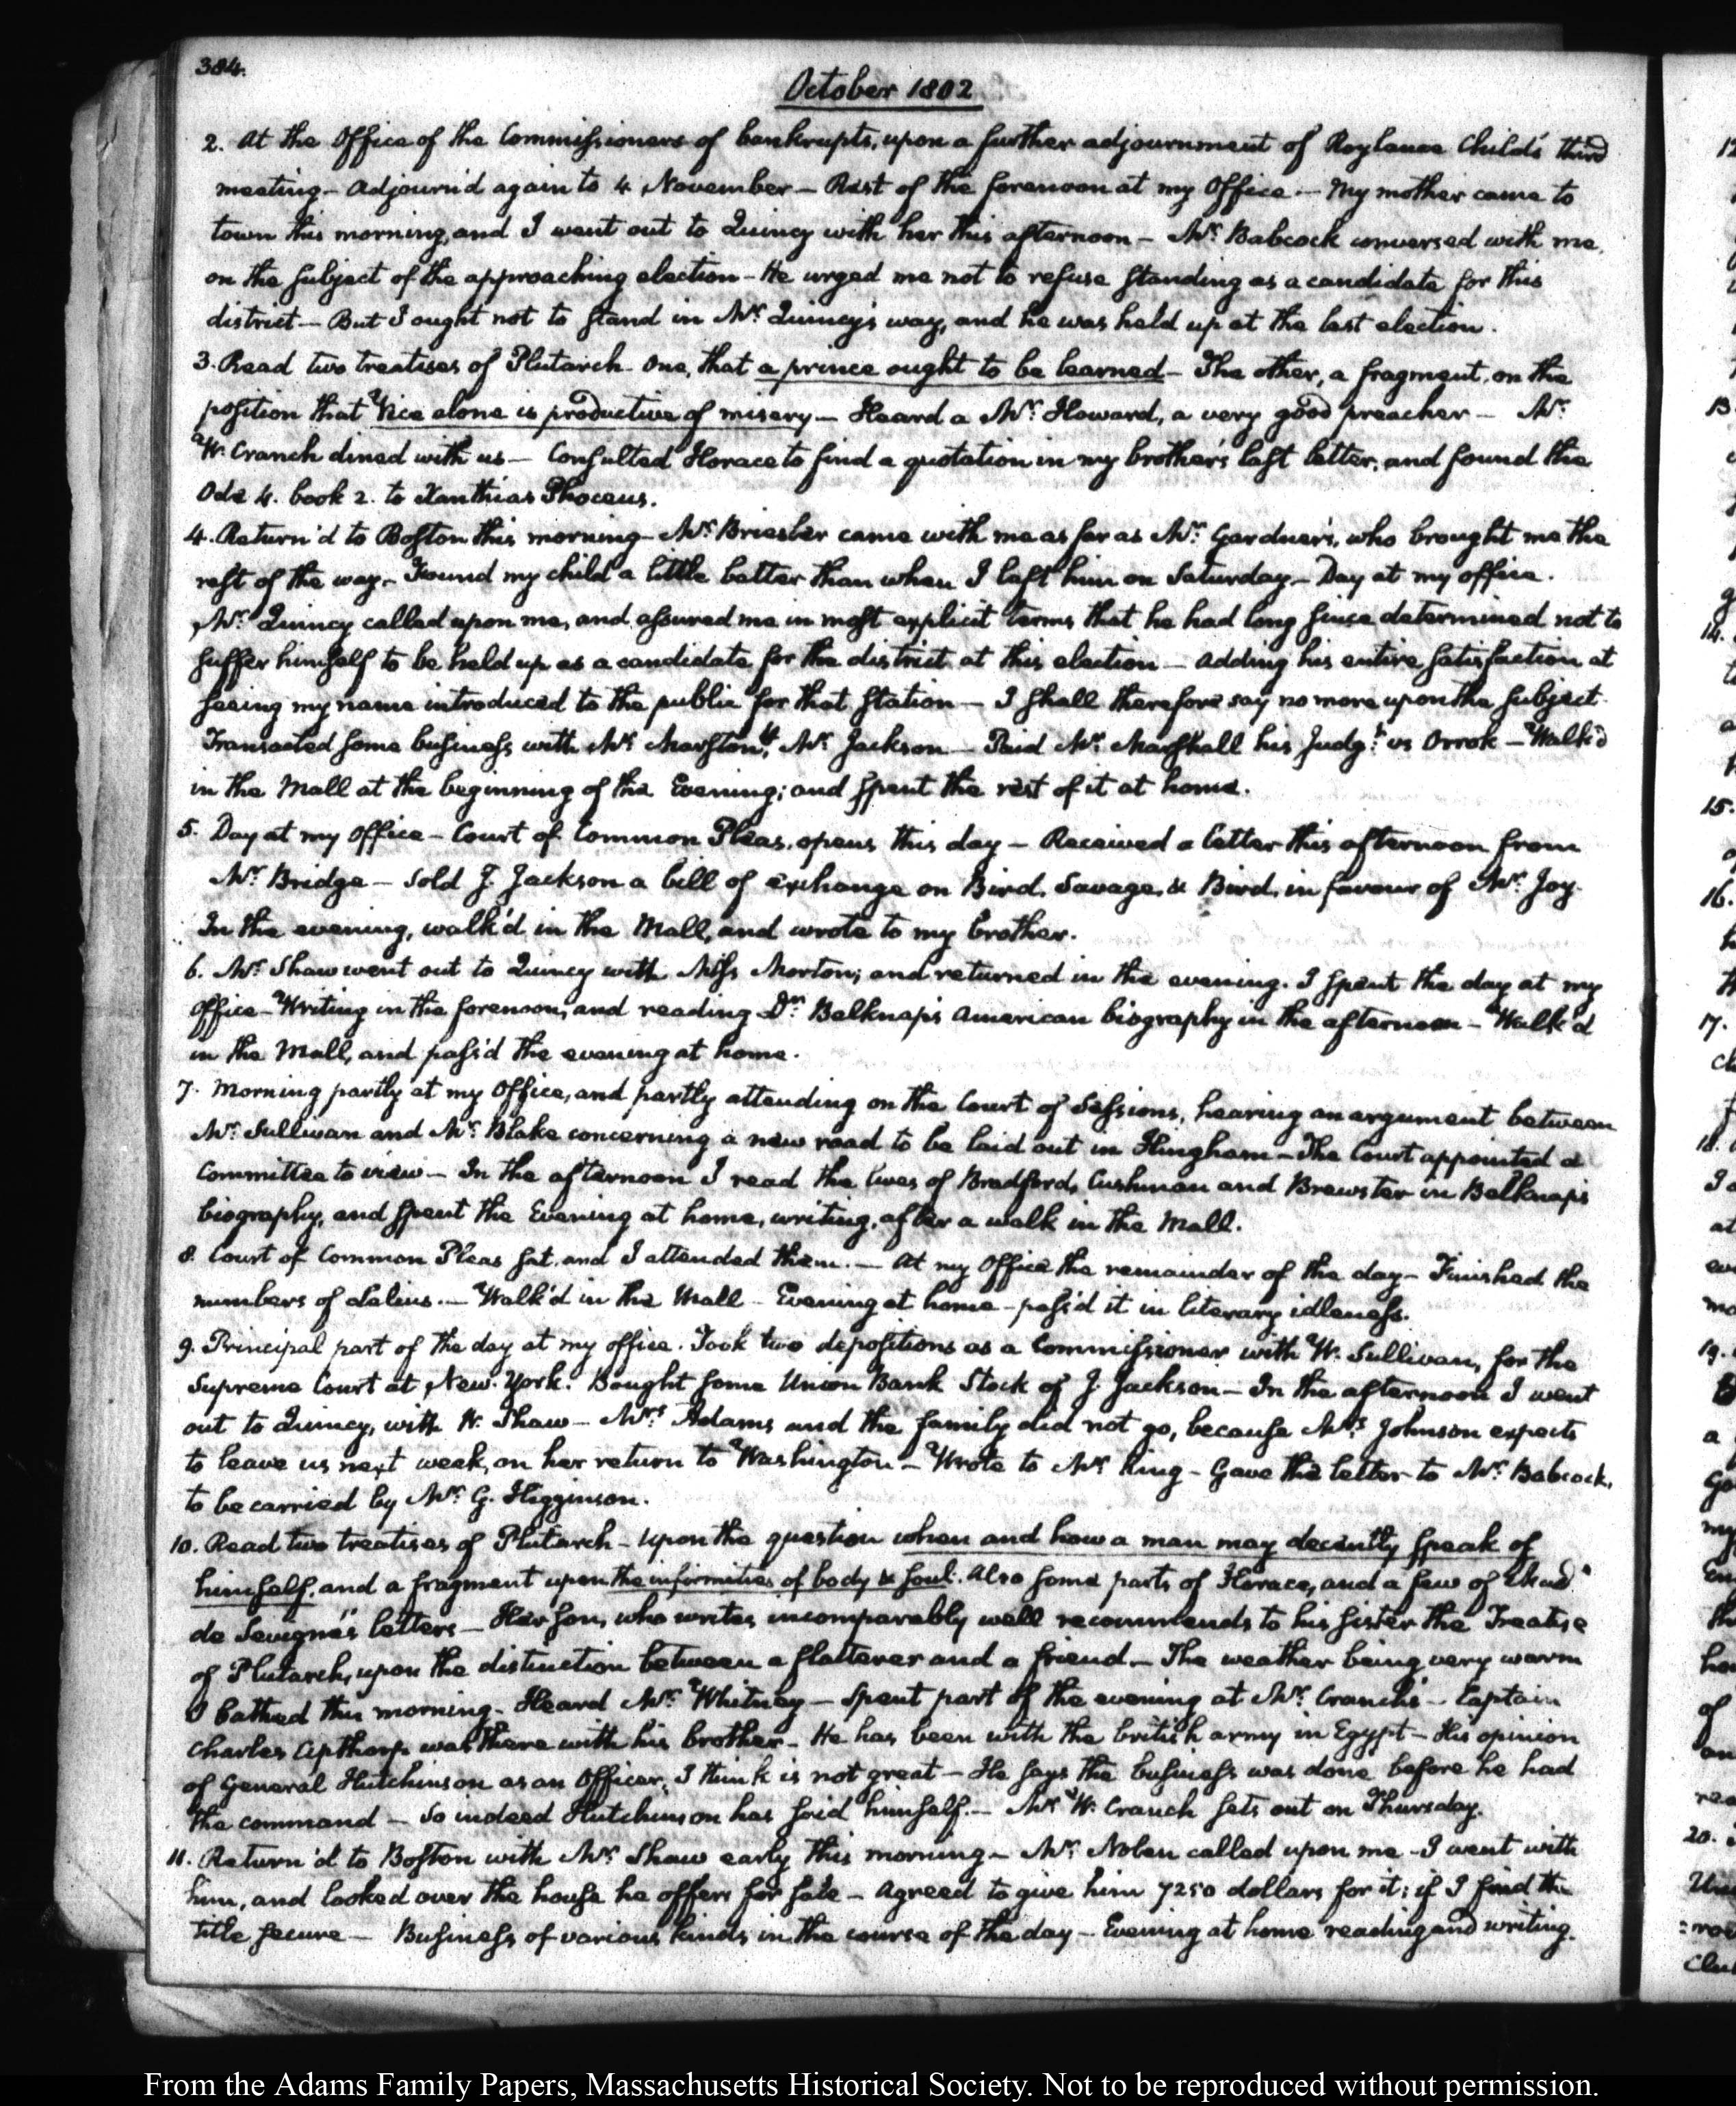 384.
October 1802
2. At the Office of the Commissioners of bankrupts, upon a further adjournment of Roylance Child's third
meeting — Adjourn'd again to 4 November — Rest of the forenoon at my Office. — My mother came to
town this morning, and I went out to Quincy with her this afternoon — Mr. Babcock conversed with me,
on the subject of the approaching election — He urged me not to refuse standing as a candidate for this
district — But I ought not to stand in Mr. Quincy's way, and he was held up at the last election.
3. Read two treatises of Plutarch. One, that a prince ought to be learned — The other, a fragment, on the
position that Vice alone is productive of misery — Heard a Mr. Howard, a very good preacher — Mr.
W. Cranch dined with us — Consulted Horace to find a quotation in my brother's last letter, and found the
Ode 4. book 2. to Xanthias Phoceus.
4. Return'd to Boston this morning — Mr. Briesler came with me as far as Mr. Gardner's, who brought me the
rest of the way — Found my child a little better than when I left him on Saturday — Day at my office.
Mr. Quincy called upon me, and assured me in most explicit terms that he had long since determined not to
suffer himself to be held up as a candidate for the district at this election — Adding his entire satisfaction at
seeing my name introduced to the public for that station — I shall therefore say no more upon the subject.
Transacted some business with Mr. Marston, & Mr. Jackson — Paid Mr. Marshall his Judgt. vs Orrok — Walk'd
in the Mall at the beginning of the Evening; and spent the rest of it at home.
5. Day at my Office — Court of Common Pleas, opens this day — Received a letter this afternoon from
Mr. Bridge — Sold J. Jackson a bill of exchange on Bird, Savage, & Bird, in favour of Mr. Joy.
In the evening, walk'd in the Mall, and wrote to my brother.
6. Mr. Shaw went out to Quincy with Miss Morton; and returned in the evening. I spent the day at my
Office — Writing in the forenoon, and reading Dr. Belknap's American biography in the afternoon — Walk'd
in the Mall, and pass'd the evening at home.
7. Morning partly at my Office, and partly attending on the Court of Sessions, hearing an argument between
Mr. Sullivan and Mr. Blake concerning a new road to be laid out in Hingham — The Court appointed a
Committee to view — In the afternoon I read the lives of Bradford, Cushman and Brewster in Belknap's
biography, and spent the Evening at home, writing, after a walk in the Mall.
8. Court of Common Pleas sat, and I attended them. — At my Office the remainder of the day — Finished the
numbers of Lælius. — Walk'd in the Mall — Evening at home — pass'd it in literary idleness.
9. Principal part of the day at my office. Took two depositions as a Commissioner with W. Sullivan, for the
Supreme Court at New-York. Bought some Union Bank Stock of J. Jackson — In the afternoon I went
out to Quincy, with W. Shaw — Mrs. Adams and the family did not go, because Mrs. Johnson expects
to leave us next week, on her return to Washington — Wrote to Mr. King — Gave the letter to Mr. Babcock,
to be carried by Mr. G. Higginson.
10. Read two treatises of Plutarch — Upon the question when and how a man may decently speak of
himself, and a fragment upon the infirmities of body & soul. Also some parts of Horace, and a few of Mad:
de Sevigné's letters — Her son, who writes incomparably well recommends to his sister the Treatise
of Plutarch, upon the distinction between a flatterer and a friend. — The weather being very warm
I bathed this morning — Heard Mr. Whitney — Spent part of the evening at Mr. Cranch's — Captain
Charles Apthorp was there with his brother — He has been with the british army in Egypt — His opinion
of General Hutchinson as an Officer, I think is not great — He says the business was done before he had
the command — So indeed Hutchinson has said himself. — Mr. W. Cranch sets out on Thursday.
11. Return'd to Boston with Mr. Shaw early this morning — Mr. Nolen called upon me — I went with
him, and looked over the house he offers for sale — Agreed to give him 7250 dollars for it; if I find the
title secure — Business of various kinds in the course of the day — Evening at home reading and writing.
From the Adams Family Papers, Massachusetts Historical Society. Not to be reproduced without permission.